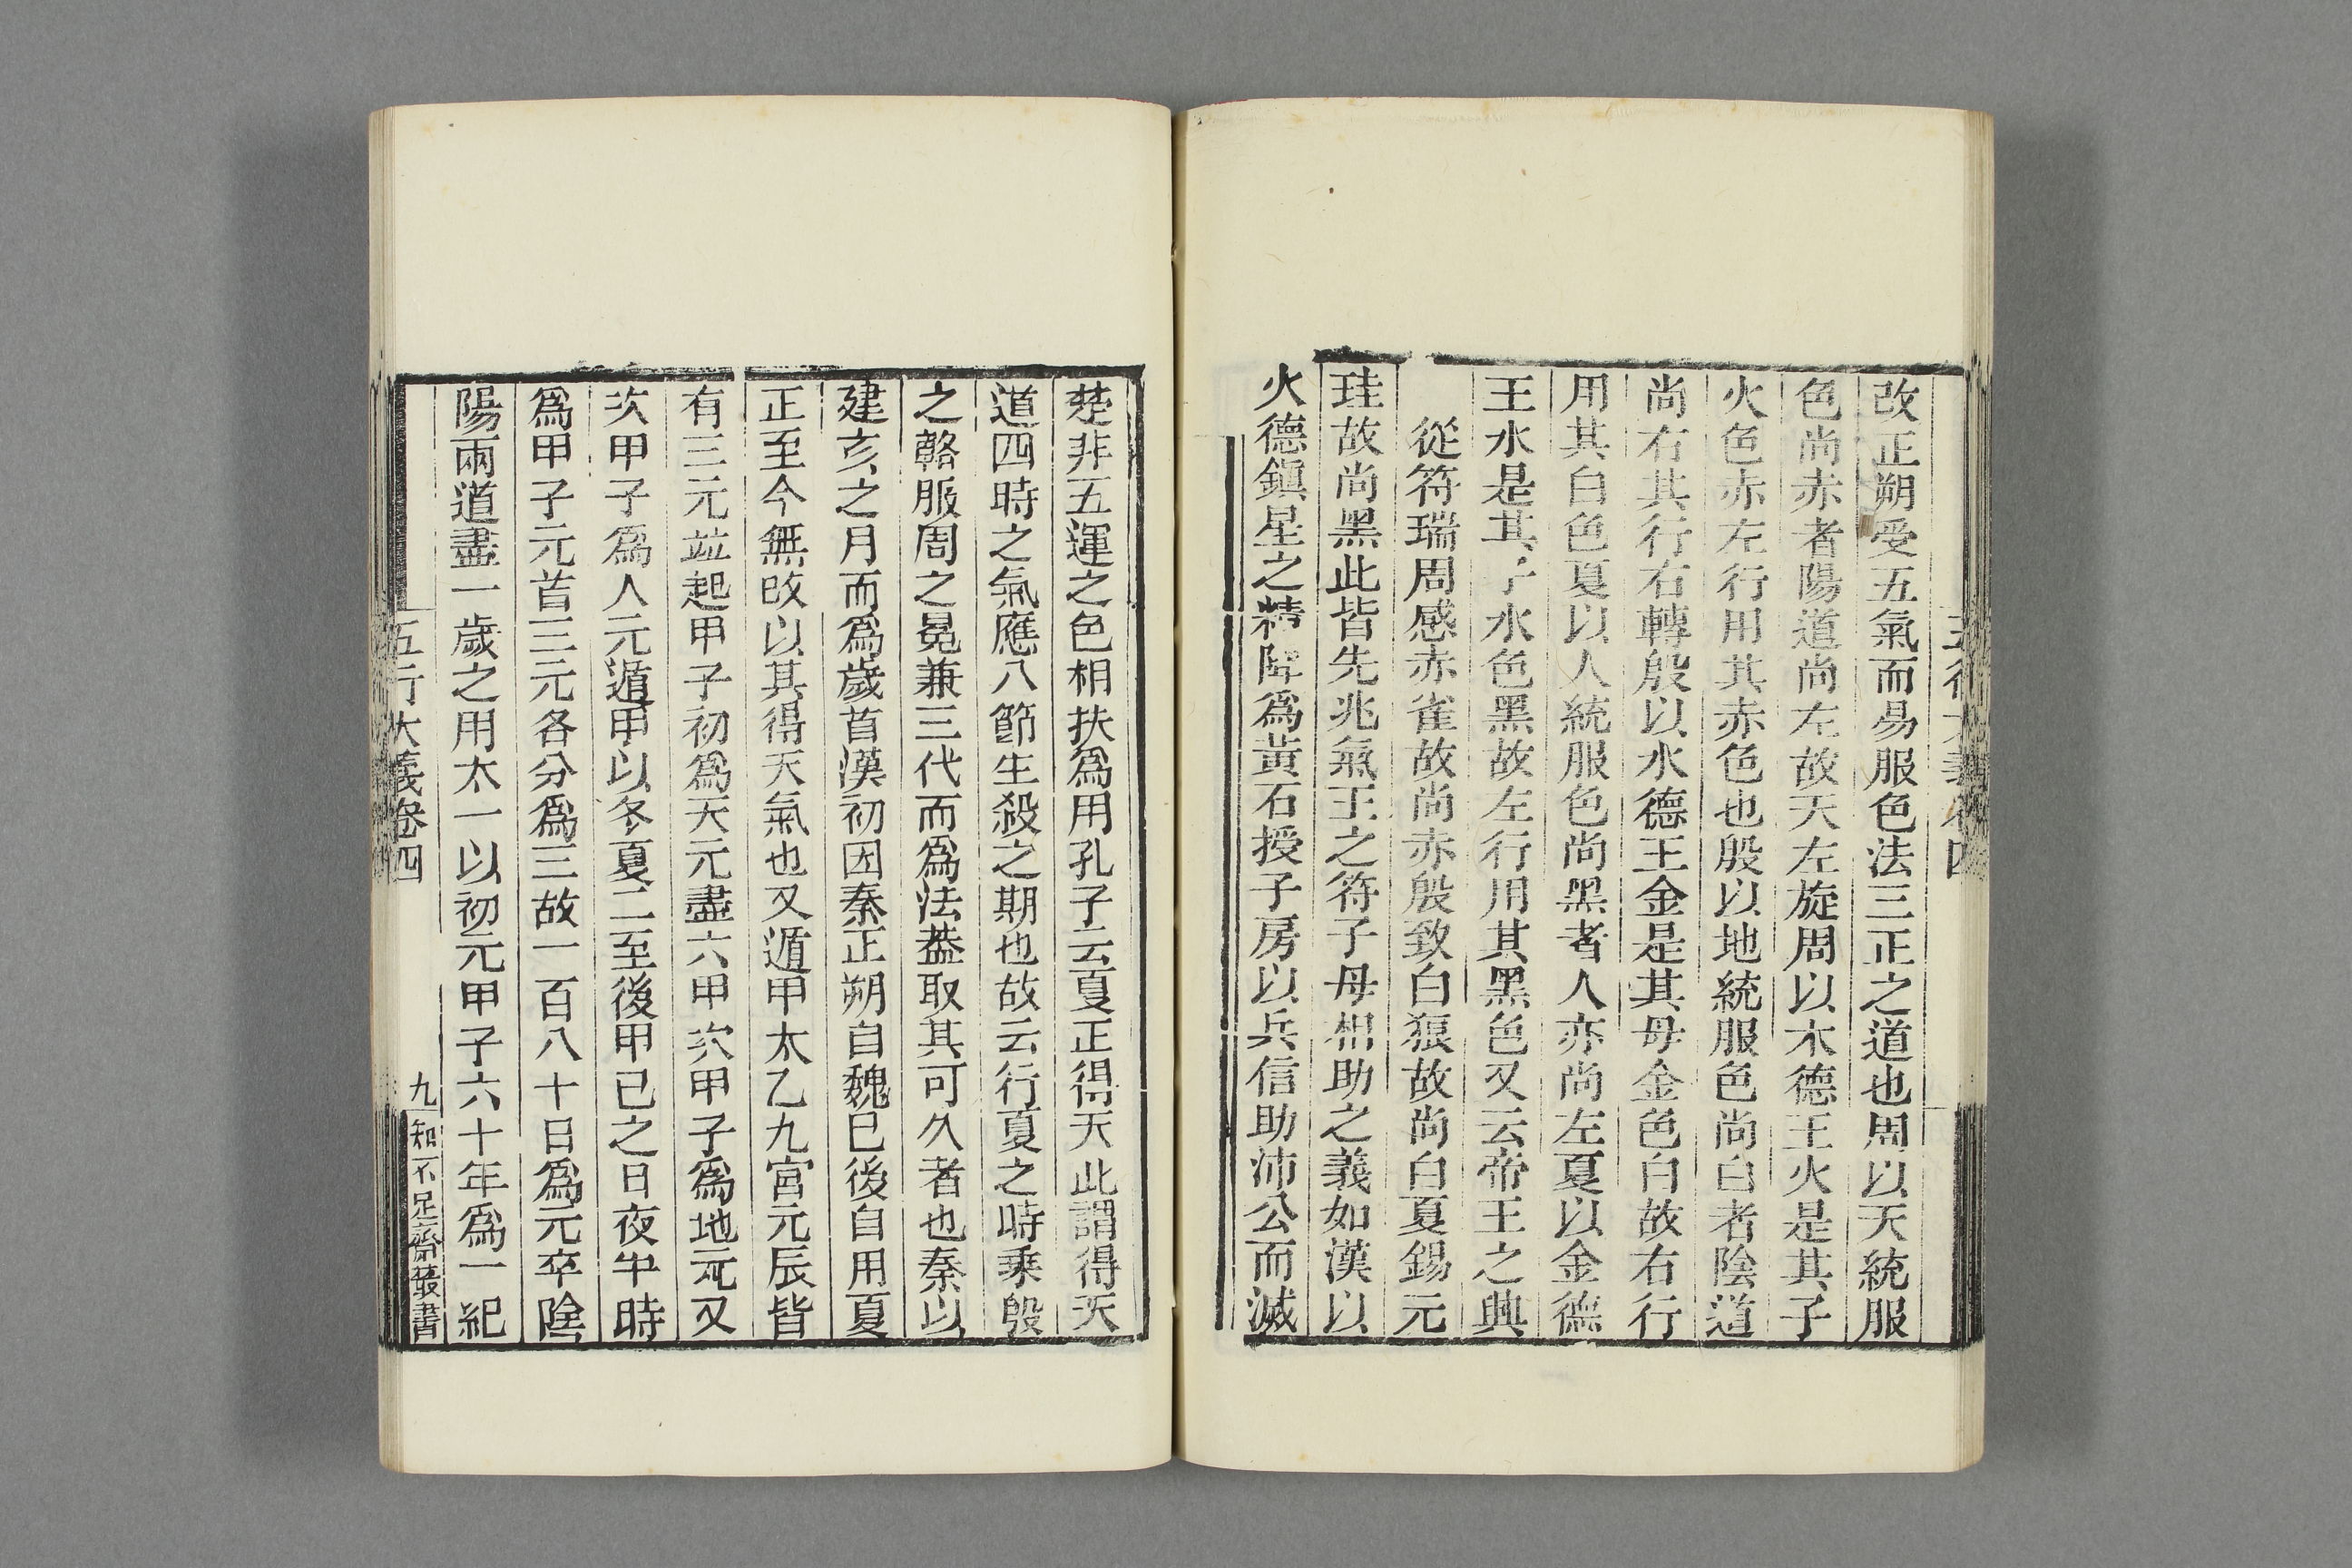 改正朔受五氣而易服色法三正之道也周以天統服
色尚赤者陽道尚左故天左旋周以木德王火是其子
火色赤左行用其赤色也殷以地統服色尚白者陰道
尚右其行右轉殷以水德王金是其母金色白故右行
用其白色夏以人統服色尚黑者人亦尚左夏以金德
王水是其子水色黑故左行用其黑色又云帝王之興
從符瑞周感赤雀故尚赤殷致白狼故尚白夏錫元
珪故尚黑此皆先兆氣王之符子母相助之義如漢以
火德鎭星之精降爲黃石授子房以兵信助沛公而滅
楚非五運之色相扶爲用孔子云夏正得天此謂得天
道四時之氣應八節生殺之期也故云行夏之時乘殷
之輅服周之冕兼三代而爲法葢取其可久者也秦以
建亥之月而爲歲首漢初因秦正朔自魏巳後自用夏
正至今無改以其得天氣也又遁甲太乙九宮元辰皆
有三元竝起甲子初爲天元盡六甲次甲子爲地元又
次甲子爲人元遁甲以冬夏二至後甲已之日夜半時
爲甲子元首三元各分爲三故一百八十日爲元卒陰
陽兩道盡一歲之用太一以初元甲子六十年爲一紀
五行大義卷四
九
知不足齋叢書